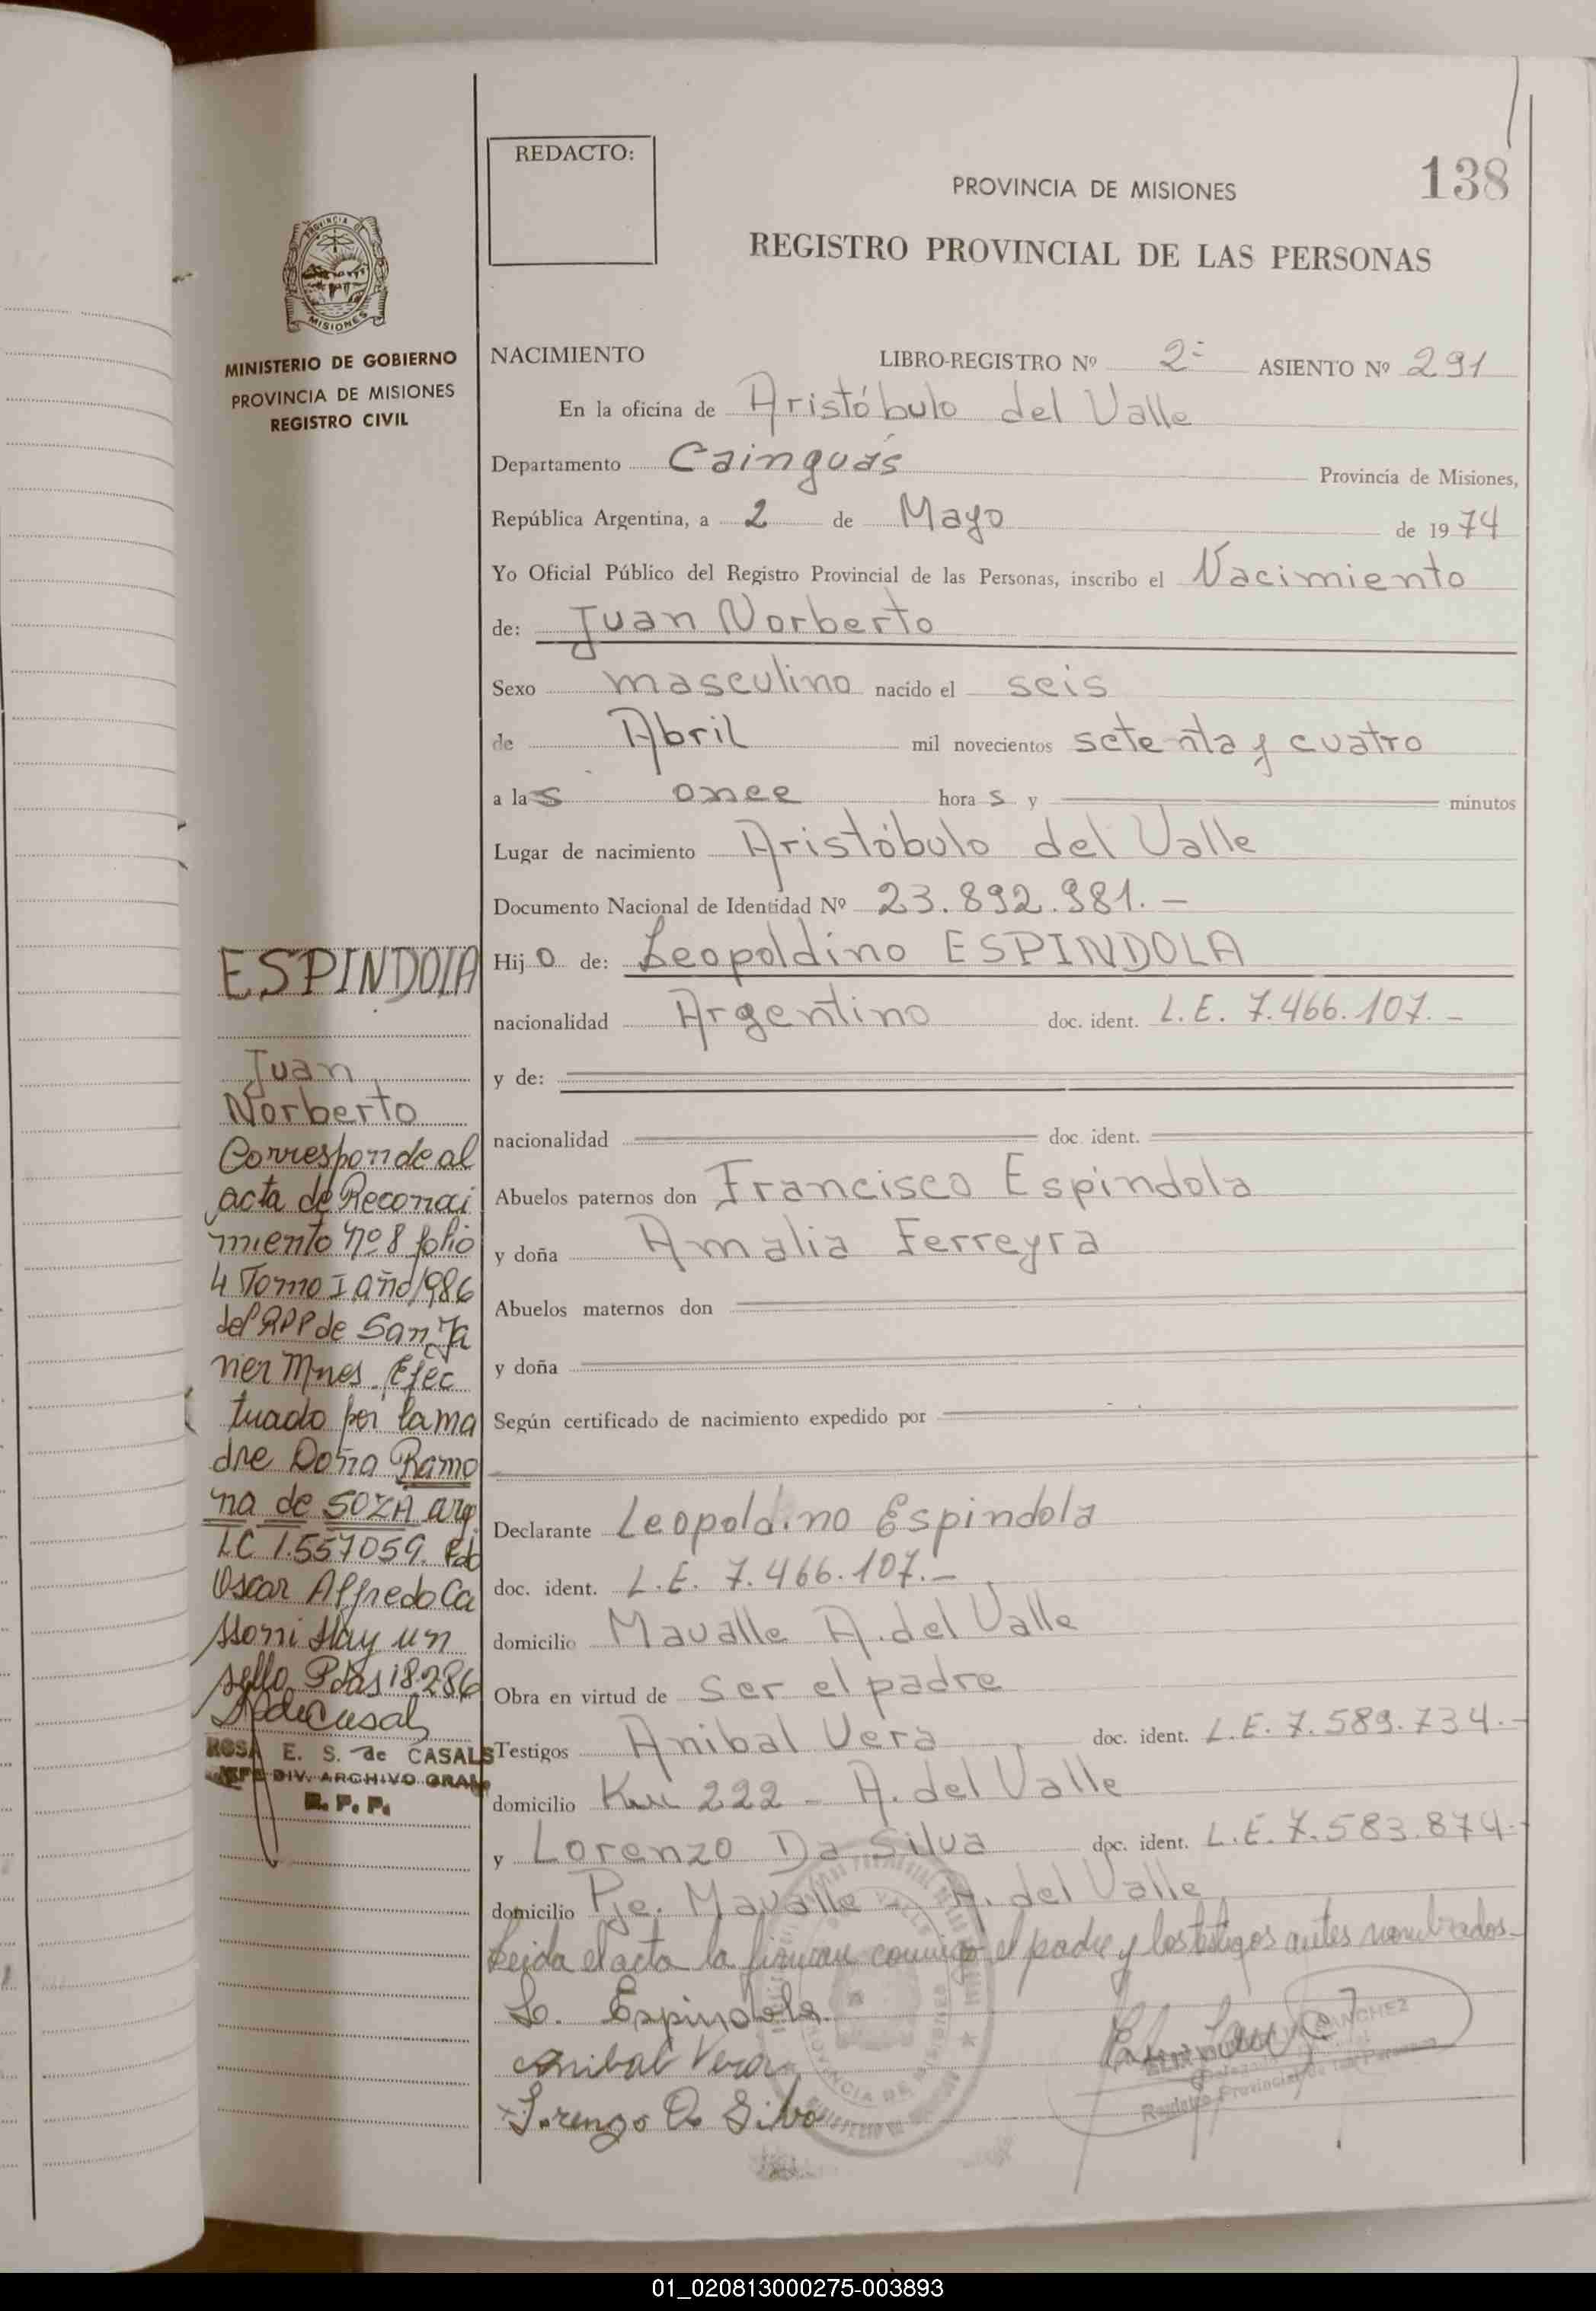 REDACTO:
138
PROVINCIA DE MISIONES
REGISTRO PROVINCIAL DE LAS PERSONAS
PROVINCIA
MISIONES
MINISTERIO DE GOBIERNO
PROVINCIA DE MISIONES
REGISTRO CIVIL
NACIMIENTO LIBRO-REGISTRO Nº 2º ASIENTO Nº 291
En la oficina de Aristóbulo del Valle
Departamento Cainguás Provincia de Misiones,
República Argentina, a 2 de Mayo de 1974
Yo Oficial Público del Registro Provincial de las Personas, inscribo el Nacimiento
de: Juan Norberto
Sexo masculino nacido el seis
de Abril mil novecientos setenta y cuatro
a las once horas y minutos
Lugar de nacimiento Aristóbulo del Valle
Documento Nacional de Identidad Nº 23.892.981.-
Hijo de: Leopoldino ESPINDOLA
nacionalidad Argentino doc. ident. L.E. 7.466.107.-
y de:
nacionalidad doc. ident.
Abuelos paternos don Francisco Espindola
y doña Amalia Ferreyra
Abuelos maternos don
y doña
Según certificado de nacimiento expedido por
Declarante Leopoldino Espindola
doc. ident. L.E. 7.466.107.-
domicilio Mavalle A. del Valle
Obra en virtud de ser el padre
Testigos Anibal Vera doc. ident. L.E. 7.589.734.-
domicilio Km 222 - A. del Valle
y Lorenzo Da Silva doc. ident. L.E. 7.583.874.-
domicilio Pje. Mavalle - A. del Valle
Leida el acta la firman conmigo el padre y los testigos antes nombrados.-
L. Espindola
Anibal Vera
Lorenzo D. Silva
SANCHEZ
Registro Provincial de las Personas
ESPINDOLA
Juan
Norberto
Corresponde al
acta de Reconoci
miento nº 8 folio
4 Tomo I año 1986
del RPP de San Ja
vier Mnes. Efec
tuado por la ma
dre Doña Ramo
na de SOZA arg.
LC 1.557059. Fdo
Oscar Alfredo Ca
ssoni Hay un
sello Pdas 18-2-86
ROSA E. S. de CASALS
JEFE DIV. ARCHIVO GRAL
R. P. P.
01_020813000275-003893